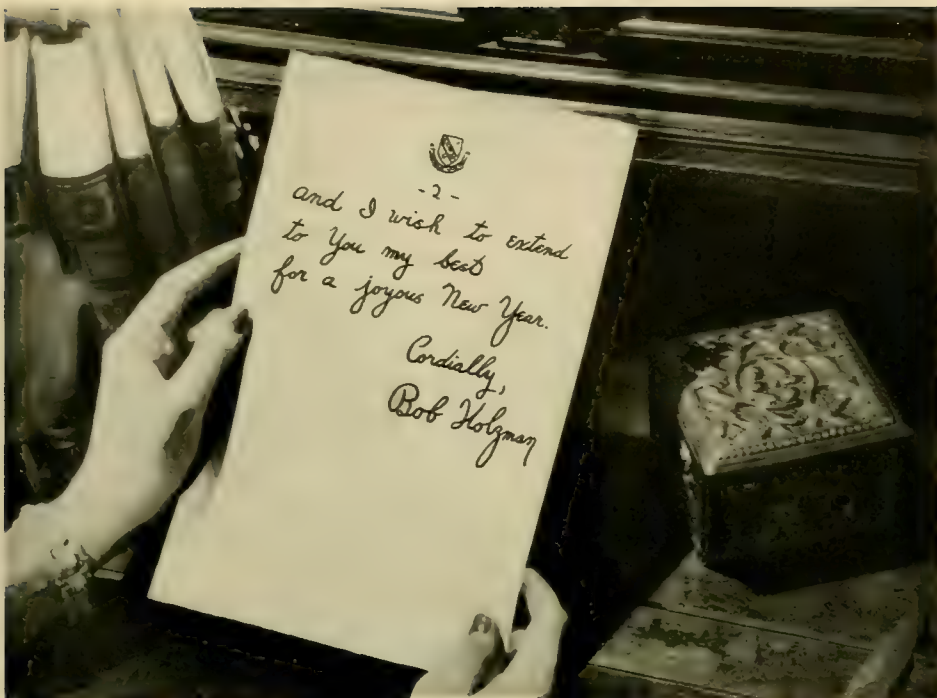 -2-
and I wish to extend
to You my best
for a joyous New Year.
Cordially,
Bob Holzman